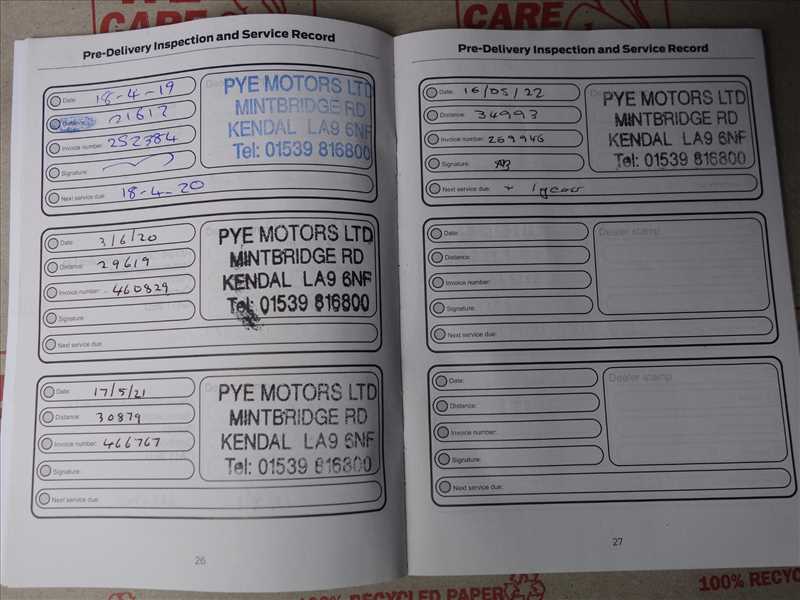 WE
CARE
WE
CARE
Pre-Delivery Inspection and Service Record
Date: 18-4-19
Distance: 21612
Invoice number: 252384
Signature:
Next service due: 18-4-20
PYE MOTORS LTD
MINTBRIDGE RD
KENDAL LA9 6NF
Tel: 01539 816800
Date: 3/6/20
Distance: 29619
Invoice number: 460829
Signature:
Next service due:
PYE MOTORS LTD
MINTBRIDGE RD
KENDAL LA9 6NF
Tel: 01539 816800
Date: 17/5/21
Distance: 30879
Invoice number: 466767
Signature:
Next service due:
PYE MOTORS LTD
MINTBRIDGE RD
KENDAL LA9 6NF
Tel: 01539 816800
26
Pre-Delivery Inspection and Service Record
Date: 16/05/22
Distance: 34993
Invoice number: 269946
Signature:
Next service due: + 1 year
PYE MOTORS LTD
MINTBRIDGE RD
KENDAL LA9 6NF
Tel: 01539 816800
Date:
Distance:
Invoice number:
Signature:
Next service due:
Dealer stamp
Date:
Distance:
Invoice number:
Signature:
Next service due:
Dealer stamp
27
100% RECYCLED PAPER
100% RECYC